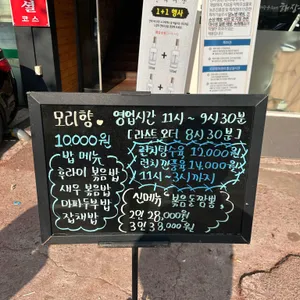 셜
코스
1+1 행사
모리향 영업시간 11시~9시30분
[라스트오더 8시30분]
10000원
밥 메뉴
후라이 볶음밥
새우 볶음밥
마파두부밥
잡채밥
런치탕수육 12,000원
런치깐풍육 14,000원
11시~3시까지
신메뉴 볶음돌짬뽕
2인 28,000원
3인 38,000원